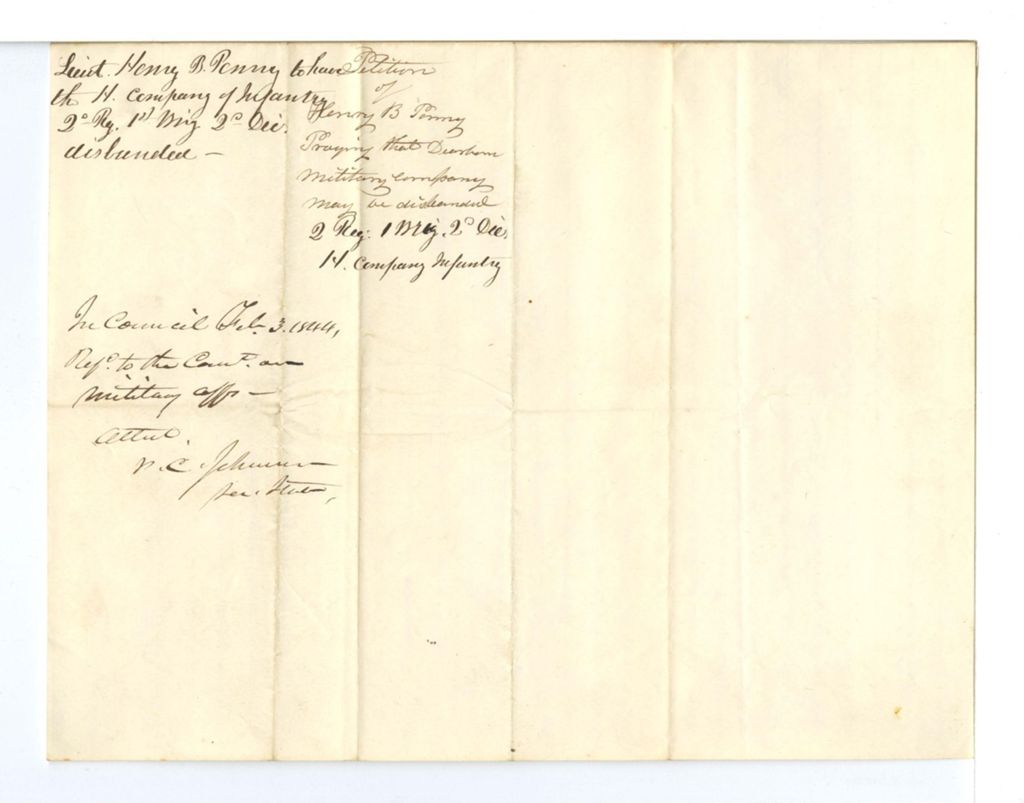 Lieut. Henry B. Penny to have
th H. Company of Infantry
2d Rg. 1st Brig. 2d Div.
disbanded –
Petition
of
Henry B Penny
Praying that Dearborn
military company
may be disbanded
2 Reg: 1 Brig. 2d Div.
H. Company Infantry
In Council Feb. 3. 1844,
Refd. to the Comt. on
military affs –
Attest.
P. C. Johnson
Sec. State,